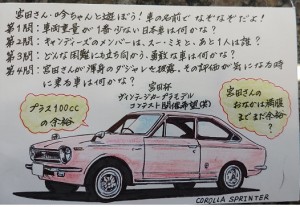 宮田さん・吟ちゃんと遊ぼう！車の名前で なぞなぞだよ！
第1問：車両重量が1番少ない日本車は何かな？
第2問：キャンディーズのメンバーは、スー・ミキと、あと1人は誰？
第3問：どんな困難にも立ち向かう、勇敢な車は何かな？
第4問：宮田さんが渾身のダジャレを披露、その評価が気になる時に乗る車は何かな？
宮田杯
ヴィンテージカープラモデル
コンテスト開催希望(笑)
プラス100cc
の余裕
宮田さんの
おなかは満腹
までまだ余裕
？
COROLLA SPRINTER